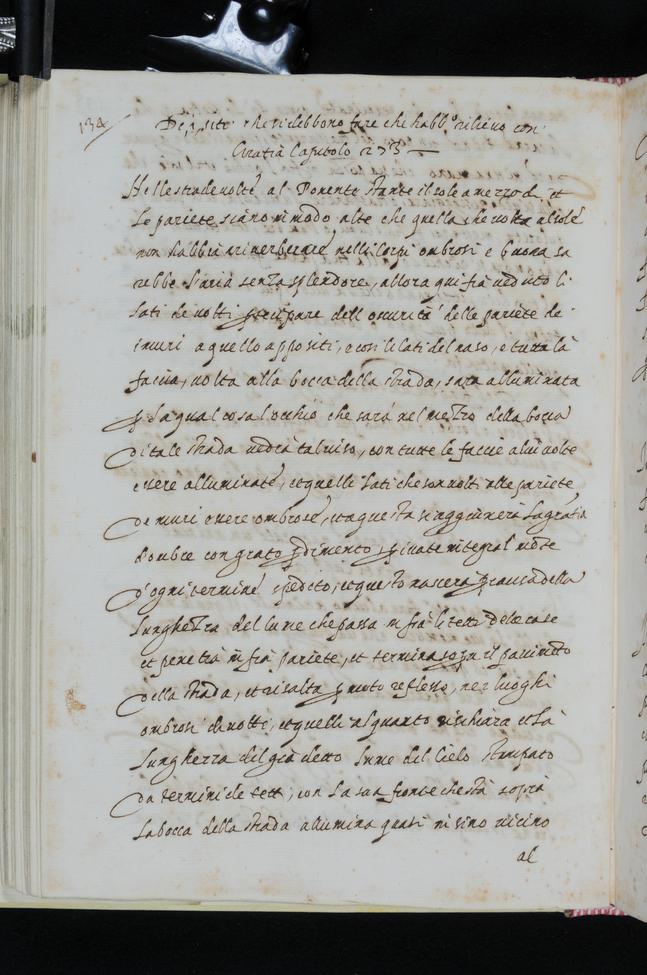 134
De i siti che si debbono fare che habb.º rilievo con
Gratia Capitolo 273 —
Nelle strade volte al Ponente stante il sole a mezzo dì et
Le pariete siano in modo alte che quella che volta al sole
non habbia a riverberare nelli Corpi ombrosi e buona sa
rebbe l'aria senza splendore, allora qui fia veduto li
lati de volti participare dell oscurità delle pariete de
muri a quello appositi, e così le lati del naso, e tutta la
faccia, volta alla bocca della strada, sara alluminata
p la qual cosa l'occhio che sarà nel mezzo della bocca
di tale strada vedra tal viso, con tutte le faccie a lui volte
essere alluminate, et quelli lati che son volti alle pariete
de muri essere ombrose, et a questa s'aggiungera la gratia
d'ombre con grato pdimento private integral mẽte
d'ogni termine spedito, et questo nascera p causa della
Lunghezza del lume che passa in fra li tetti dele case
et penetra in fra pariete, et termina sopra il pavimẽto
della strada, et risalta p moto reflesso, nei luoghi
ombrosi de volti, et quelli alquanto rischiara et La
Lunghezza del già detto lume del Cielo stampato
da termini de tett, con la sua fronte che sta sopra
la bocca della strada allumina quasi in sino vicino
al